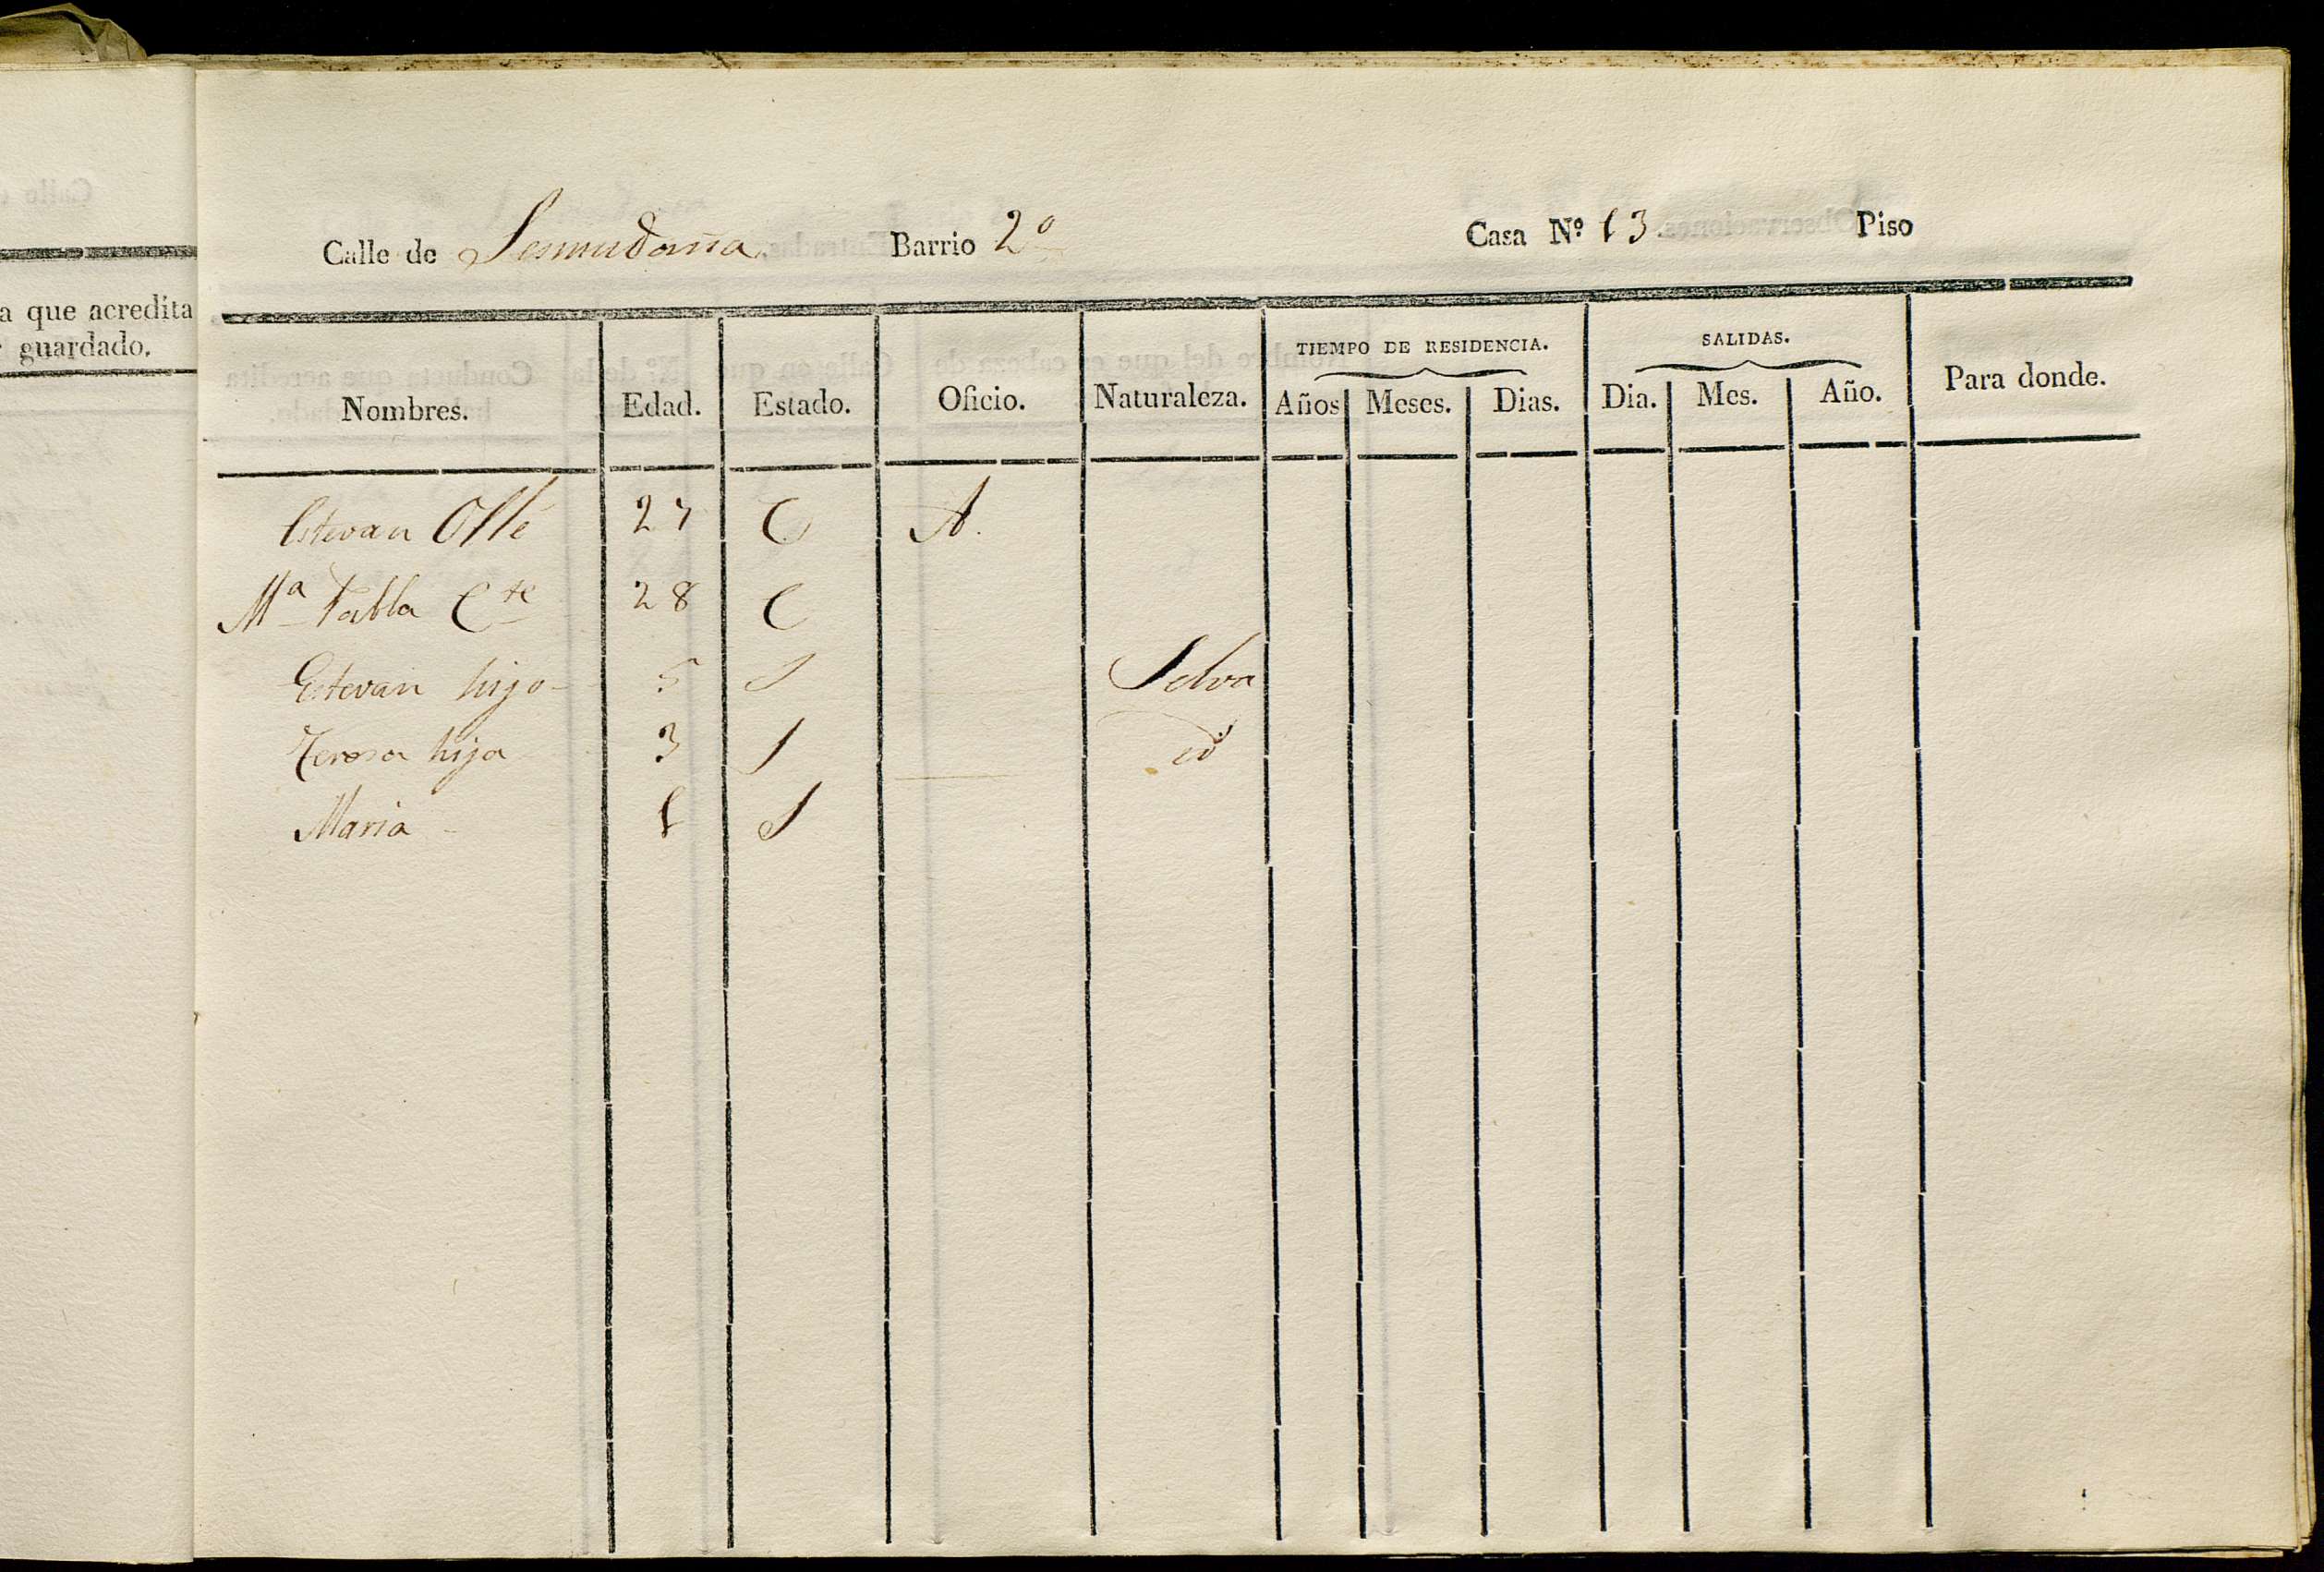 a que acredita
guardado.
Calle de Semudaña. Barrio 2º Casa Nº 13 Piso
TIEMPO DE RESIDENCIA. SALIDAS.
Nombres. Edad. Estado. Oficio. Naturaleza. Años Meses. Dias. Dia. Mes. Año. Para donde.
Estevan Ollé 27 C A.
Mª C.te 28 C
Estevan hijo 5 S Selva
Teresa hija 3 S id
Maria 1 S